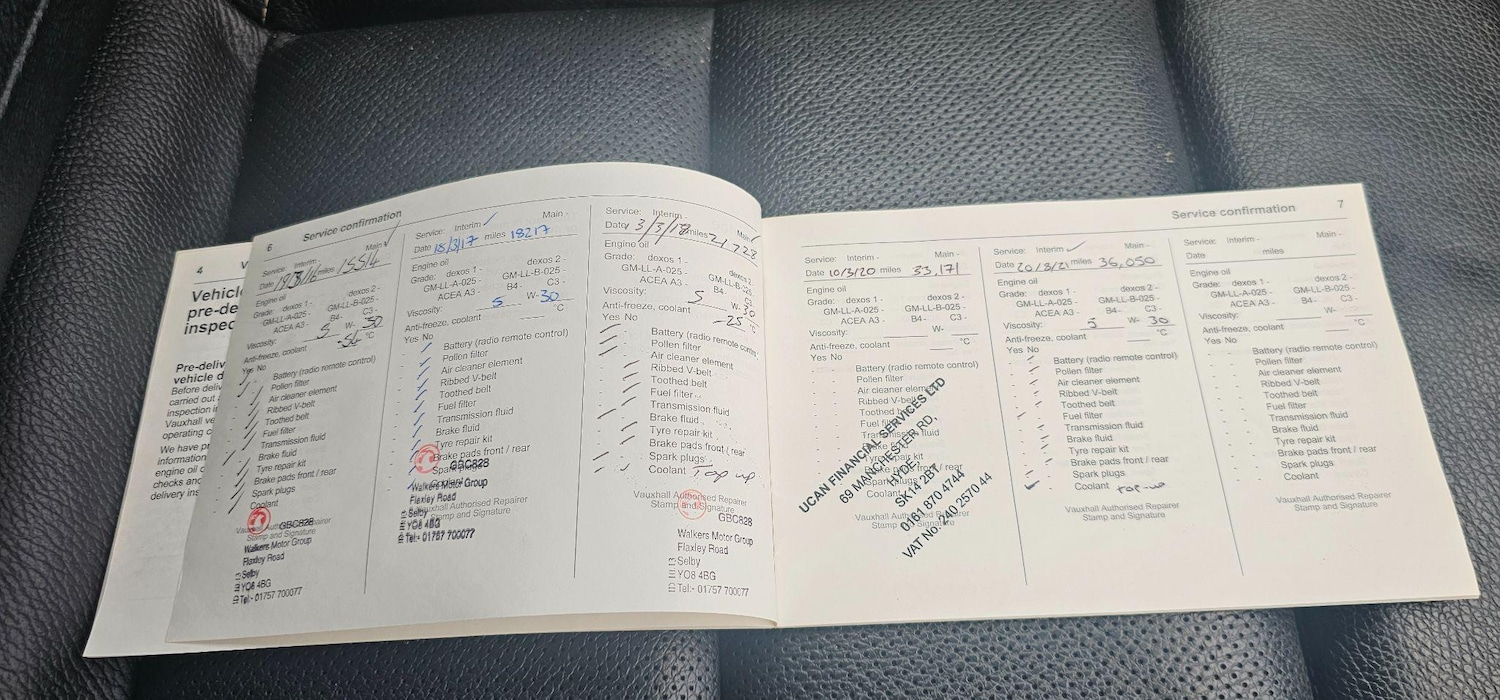 4
V
Vehicl
pre-de
inspec
Pre-deliv
vehicle d
Before deliv
carried out
inspection i
Vauxhall ve
operating c
We have p
information
engine oil c
checks and
delivery ins
6
Service confirmation
Service: Interim - Main ✓
Date miles 15514
Engine oil
Grade: dexos 1 - dexos 2 -
GM-LL-A-025 - GM-LL-B-025 -
ACEA A3 - B4- C3 -
Viscosity: 5 W- 30
Anti-freeze, coolant °C
Yes No
Battery (radio remote control)
Pollen filter
Air cleaner element
Ribbed V-belt
Toothed belt
Fuel filter
Transmission fluid
Brake fluid
Tyre repair kit
Brake pads front / rear
Spark plugs
Coolant
Stamp and Signature
GBC828
Walkers Motor Group
Flaxley Road
Selby
YO8 4BG
Tel:- 01757 700077
Service: Interim ✓ Main -
Date 18/3/17 miles 18217
Engine oil
Grade: dexos 1 - dexos 2 -
GM-LL-A-025 - GM-LL-B-025 -
ACEA A3 - B4- C3 -
Viscosity: 5 W- 30
Anti-freeze, coolant °C
Yes No
Battery (radio remote control)
Pollen filter
Air cleaner element
Ribbed V-belt
Toothed belt
Fuel filter
Transmission fluid
Brake fluid
Tyre repair kit
Brake pads front / rear
GBC828
Walkers Motor Group
Flaxley Road
Vauxhall Authorised Repairer
Selby
Stamp and Signature
YO8 4BG
Tel:- 01757 700077
Service: Interim - Main ✓
Date 3/3/18 miles 21728
Engine oil
Grade: dexos 1 - dexos 2 -
GM-LL-A-025 - GM-LL-B-025
ACEA A3 - B4- C3
Viscosity: 5 W- 30
Anti-freeze, coolant -25 °C
Yes No
Battery (radio remote control)
Pollen filter
Air cleaner element
Ribbed V-belt
Toothed belt
Fuel filter
Transmission fluid
Brake fluid
Tyre repair kit
Brake pads front / rear
Spark plugs
Coolant Top up
Vauxhall Authorised Repairer
Stamp and Signature
GBC828
Walkers Motor Group
Flaxley Road
Selby
YO8 4BG
Tel:- 01757 700077
Service confirmation
7
Service: Interim - Main -
Date 10/3/20 miles 33,171
Engine oil
Grade: dexos 1 - dexos 2 -
GM-LL-A-025 - GM-LL-B-025 -
ACEA A3 - B4- C3 -
Viscosity: W-
Anti-freeze, coolant °C
Yes No
Battery (radio remote control)
Pollen filter
Air cleaner element
Ribbed V-belt
Toothed belt
Fuel filter
Transmission fluid
Brake fluid
Tyre repair kit
Brake pads front / rear
Spark plugs
Coolant
Vauxhall Authorised Repairer
Stamp and Signature
UCAN FINANCIAL SERVICES LTD
69 MANCHESTER RD,
HYDE,
SK14 2BT
0161 870 4744
VAT No: 240 2570 44
Service: Interim ✓ Main -
Date 20/8/21 miles 36,050
Engine oil
Grade: dexos 1 - dexos 2 -
GM-LL-A-025 - GM-LL-B-025 -
ACEA A3 - B4- C3 -
Viscosity: 5 W- 30
Anti-freeze, coolant °C
Yes No
Battery (radio remote control)
Pollen filter
Air cleaner element
Ribbed V-belt
Toothed belt
Fuel filter
Transmission fluid
Brake fluid
Tyre repair kit
Brake pads front / rear
Spark plugs
Coolant top-up
Vauxhall Authorised Repairer
Stamp and Signature
Service: Interim - Main -
Date miles
Engine oil
Grade: dexos 1 - dexos 2 -
GM-LL-A-025 - GM-LL-B-025 -
ACEA A3 - B4- C3 -
Viscosity: W-
Anti-freeze, coolant °C
Yes No
Battery (radio remote control)
Pollen filter
Air cleaner element
Ribbed V-belt
Toothed belt
Fuel filter
Transmission fluid
Brake fluid
Tyre repair kit
Brake pads front / rear
Spark plugs
Coolant
Vauxhall Authorised Repairer
Stamp and Signature